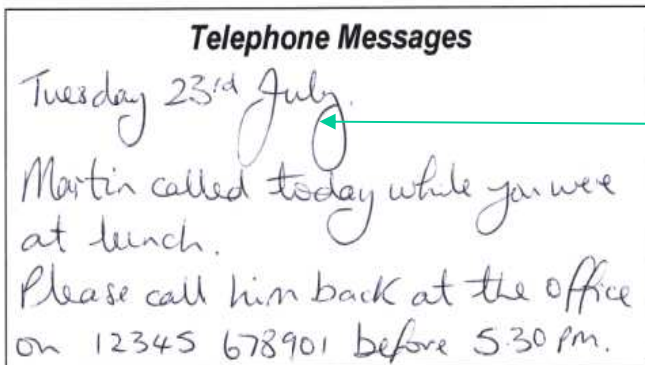 Telephone Messages
Tuesday 23rd July.
Martin called today while you were
at lunch.
Please call him back at the office
on 12345 678901 before 5.30 pm.